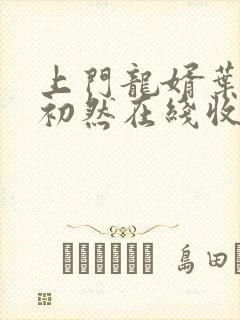 上門龍婿葉
初然在綫收
島田